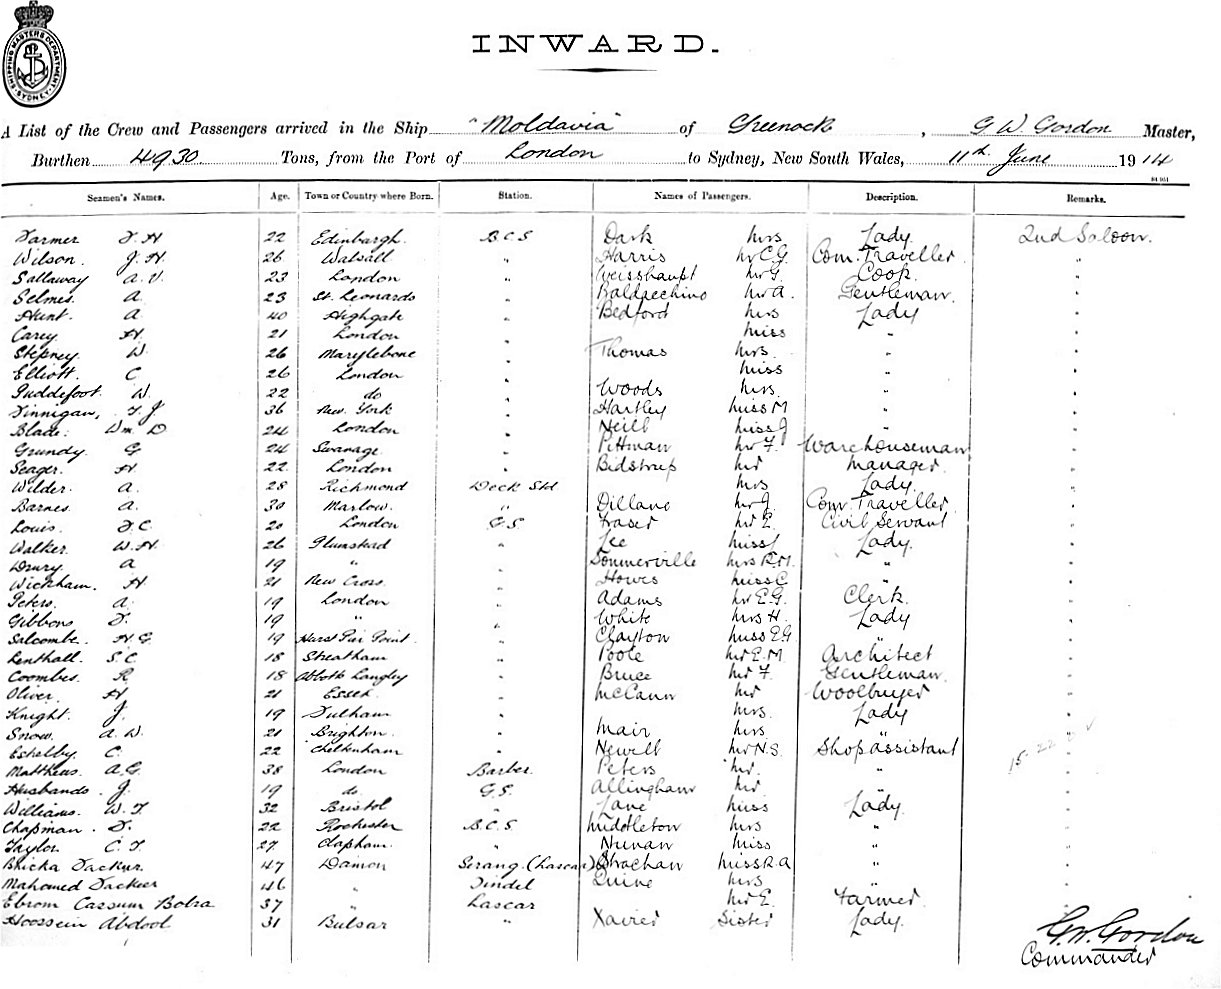 SHIPPING MASTERS DEPARTMENT SYDNEY
INWARD.
A List of the Crew and Passengers arrived in the Ship "Moldavia" of Greenock, G W. Gordon Master,
Burthen 4930 Tons, from the Port of London to Sydney, New South Wales, 11th June 1914
Seamen's Names. Age. Town or Country where Born. Station. Names of Passengers. Description. Remarks.
Farmer F. H 22 Edinburgh. B.C.S Dark Mrs Lady. 2nd Saloon.
Wilson. J. H. 26 Walsall " Harris Mr C.G. Com. Traveller "
Sallaway A. V. 23 London " Weisshaupt Mr G. Cook. "
Selmes. A. 23 St. Leonards " Baldacchino Mr A. Gentleman. "
Hunt. A 40 Highgate " Bedford Mrs Lady "
Carey H. 21 London " Miss " "
Stepney W. 26 Marylebone " Thomas Mrs. " "
Elliott. C 26 London " Miss " "
Puddefoot. W. 22 do " Woods Mrs. " "
Finnigan, T. J. 36 New York " Hartley Miss M " "
Blade. Wm D 24 London " Neill Miss J " "
Grundy G 24 Swanage " Pittman Mr F. Warehouseman "
Seager. H. 22 London " Bidstrup Mr Manager. "
Wilder. A. 28 Richmond Deck Std Mrs Lady. "
Barnes. A. 30 Marlow. " Dillane Mr J. Com. Traveller. "
Louis. F C. 20 London G.S Fraser Mr E. Civil Servant "
Walker. W. H. 26 Plumstead " Lee Miss Lady. "
Drury. A 19 " " Sommerville Mrs R.M. " "
Wickham. H 21 New Cross. " Howes Miss C " "
Peters. A. 19 London " Adams Mr E.G. Clerk. "
Gibbons F. 19 " " White Mrs H. Lady "
Salcombe. H. G. 19 Hurst Pier Point. " Clayton Miss E.G. " "
Lenthall. S. C. 18 Streatham " Poole Mr E.M. Architect "
Coombes. R 18 Abbots Langley " Bruce Mr F. Gentleman. "
Oliver. H 21 Essex. " McCann Mr Woolbuyer "
Knight. J. 19 Fulham " Mrs. Lady "
Snow. A. W. 21 Brighton. " Mair Mrs. " "
Eshelby. C. 22 Cheltenham " Newell Mr N.S. Shop assistant "
Matthews. A. G. 38 London Barber. Peters Mr. " "
Husbands. J. 19 do. G.S. Allingham Mr " "
Williams. W. T. 32 Bristol " Lane Miss Lady. "
Chapman. F. 22 Rochester B.C.S. Middleton Mrs " "
Taylor C. T. 27 Clapham. " Nunan Miss " "
Bhicka Fackir. 47 Damon Serang (Lascar) Strachan Miss R.A " "
Mahomed Fackeer 46 " Tindel Quine Mrs. " "
Ebrom Cassum Bobra 37 " Lascar Mr E. Farmer. "
Hoossein Abdool 31 Bulsar " Xavier Sister Lady.
G.W. Gordon
Commander